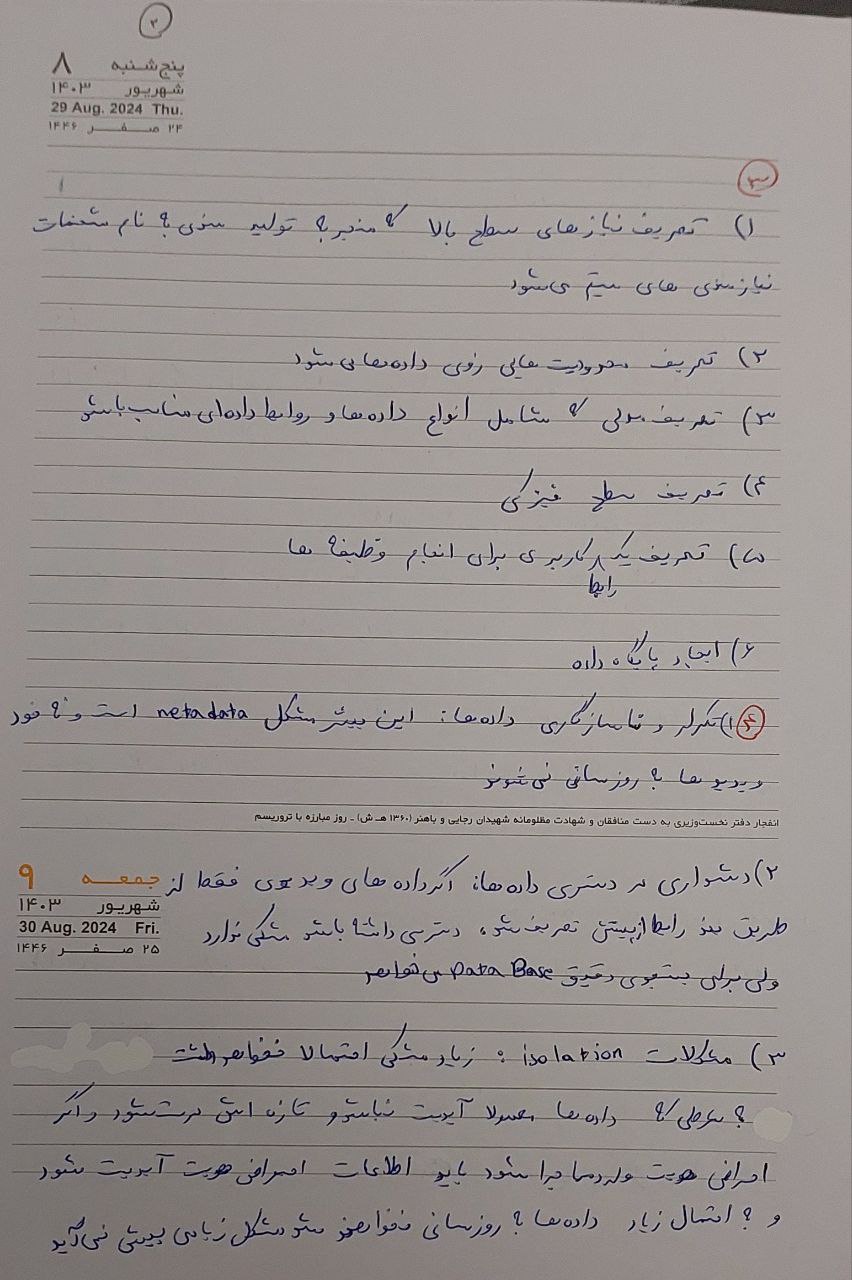 ۲
پنج‌شنبه ۸
شهریور ۱۴۰۳
29 Aug. 2024 Thu.
۲۴ صفر ۱۴۴۶
۳
۱) تعریف نیازهای سطح بالا که منجر به تولید سندی به نام مشخصات
نیازمندی های سیستم می‌شود
۲) تعریف محدودیت هایی روی داده‌ها می شود
۳) تعریف مدلی که شامل انواع داده‌ها و روابط داده‌ای مناسب باشد
۴) تعریف سطح فیزیکی
۵) تعریف یک رابط کاربری برای انجام وظیفه ها
۶) ایجاد پایگاه داده
۴ ۱) تکرار و ناسازگاری داده‌ها: این بیشتر مشکل metadata است و نه خود
ویدیو ها به روزرسانی نمی‌شوند
انفجار دفتر نخست‌وزیری به دست منافقان و شهادت مظلومانه شهیدان رجایی و باهنر (۱۳۶۰ هـ.ش) ـ روز مبارزه با تروریسم
جمعه ۹
شهریور ۱۴۰۳
30 Aug. 2024 Fri.
۲۵ صفر ۱۴۴۶
۲) دشواری در دسترسی داده‌ها: اگر داده های ویدیوی فقط از
طریق چند رابط از پیش تعریف شده، دسترسی داشته باشد مشکلی ندارد
ولی برای جستجوی دقیق Data Base می خواهد
۳) مشکلات isolation : زیاد مشکلی احتمالا نخواهد داشت
به شرطی که داده ها معمولا آپدیت نباشد و تازه درست شود و اگر
احراز هویت جدا شود باید اطلاعات احراز هویت آپدیت شود
و به احتمال زیاد داده‌ها به روزرسانی نخواهد شد مشکل زیادی پیش نمی‌آید